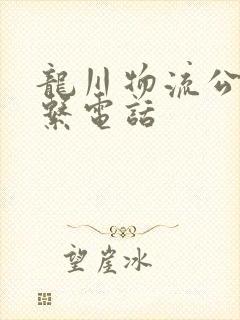 龍川物流公
繫電話
望崖冰